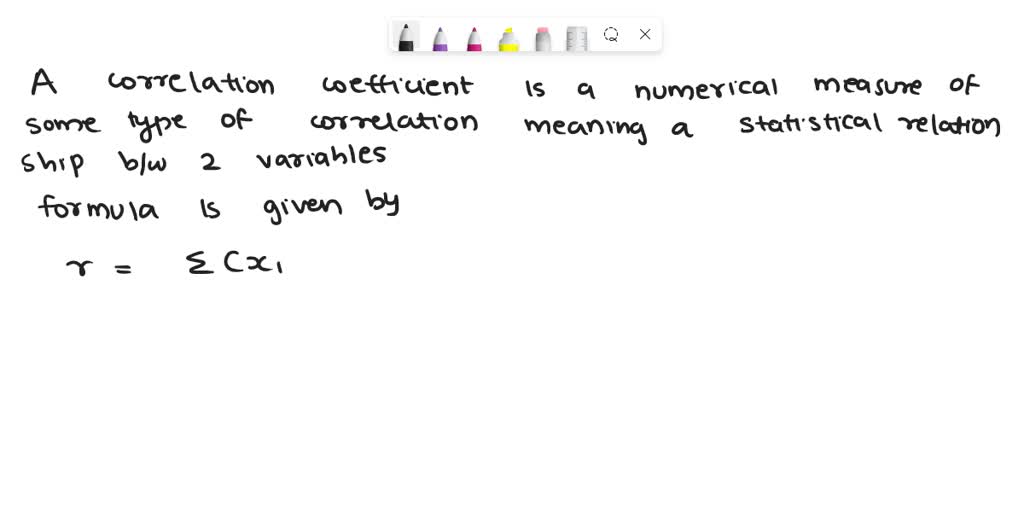 A correlation coefficient is a numerical measure of
some type of correlation meaning a statistical relation
ship b/w 2 variables
formula is given by
r = Σ (x,